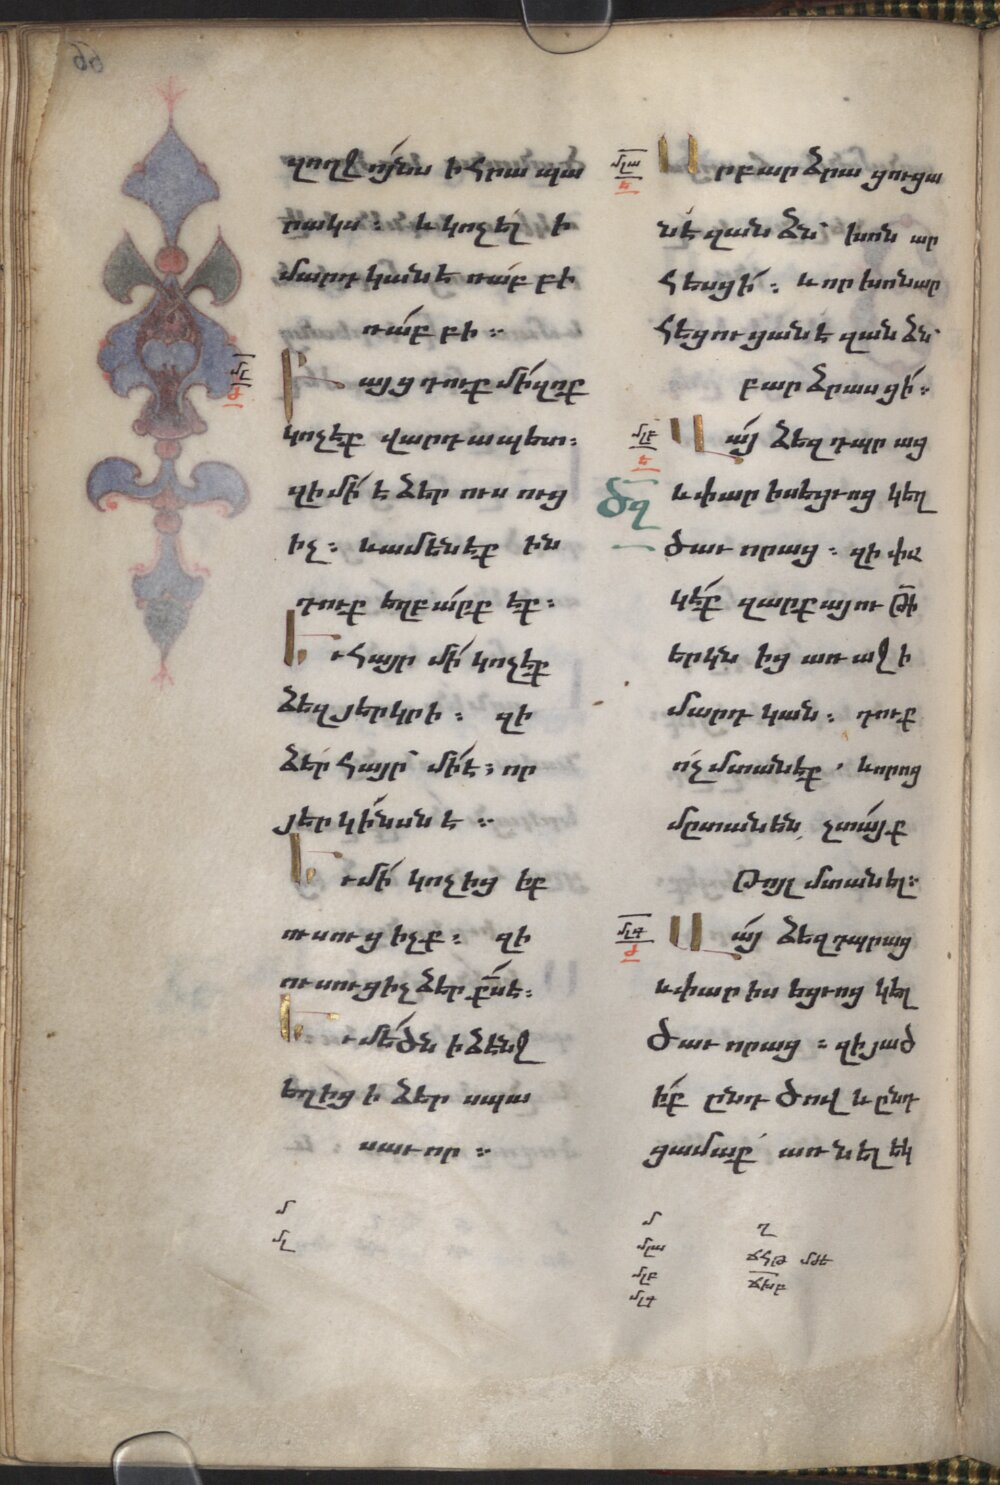 զողջոյնս ի հրապա
րակս։ և կոչել ի
մարդկանե ռաբբի
ռաբբի։
Բայց դուք մի զոք
կոչեք վարդապետ։
զի մի է ձեր ուսուց
իչ։ և ամենեքին
դուք եղբարք եք։
Եւ հայր մի կոչեք
ձեզ յերկրի։ զի
ձեր հայր մի է։ որ
յերկինսն է։
Եւ մի կոչիցիք
ուսուցիչք։ զի
ուսուցիչ ձեր քս է։
Եւ մեծն ի ձէնջ
եղիցի ձեր սպա
սաւոր։
մ
մլ
մլա
ե
Որ բարձրացուցա
նէ զանձն՝ խոնար
հեսցի։ և որ խոնար
հեցուցանէ զանձն՝
բարձրասցի։
մլբ
ե
Վայ ձեզ դպրաց
ծզ
և փարիսեցւոց կեղ
ծաւորաց։ զի փա
կէք զարքայութի
երկնից առաջի
մարդկան։ դուք
ոչ մտանէք, և որոց
մըտանեն, չտայք
թոյլ մտանել։
մլգ
ժ
Վայ ձեզ դպրաց
և փարիսեցւոց կեղ
ծաւորաց։ զի յած
իք ընդ ծով և ընդ
ցամաք՝ առնել եկ
մ ղ
մլա ճհթ մժե
մլբ ճխբ
մլգ